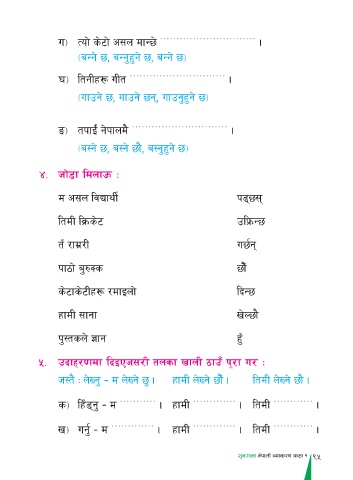 ग) त्यो केटो असल मान्छे ............................ ।
(बन्ने छ, बन्नुहुने छ, बन्ने छ)
घ) तिनीहरू गीत ............................ ।
(गाउने छ, गाउने छन्, गाउनुहुने छ)
ङ) तपाईं नेपालमै ............................ ।
(बस्ने छ, बस्ने छौ, बस्नुहुने छ)
४. जोडा मिलाऊ :
म असल विद्यार्थी पढ्छस्
तिमी क्रिकेट उफ्रिन्छ
तँ राम्ररी गर्छन्
पाठो बुरुक्क छौँ
केटाकेटीहरू रमाइलो दिन्छ
हामी साना खेल्छौ
पुस्तकले ज्ञान हुँ
५. उदाहरणमा दिइएजसरी तलका खाली ठाउँ पूरा गर :
जस्तै : लेख्नु - म लेख्ने छु । हामी लेख्ने छौँ । तिमी लेख्ने छौ ।
क) हिँड्नु - म ............ । हामी ............ । तिमी ............ ।
ख) गर्नु - म ............ । हामी ............ । तिमी ............ ।
नेपाली व्याकरण कक्षा १ १५